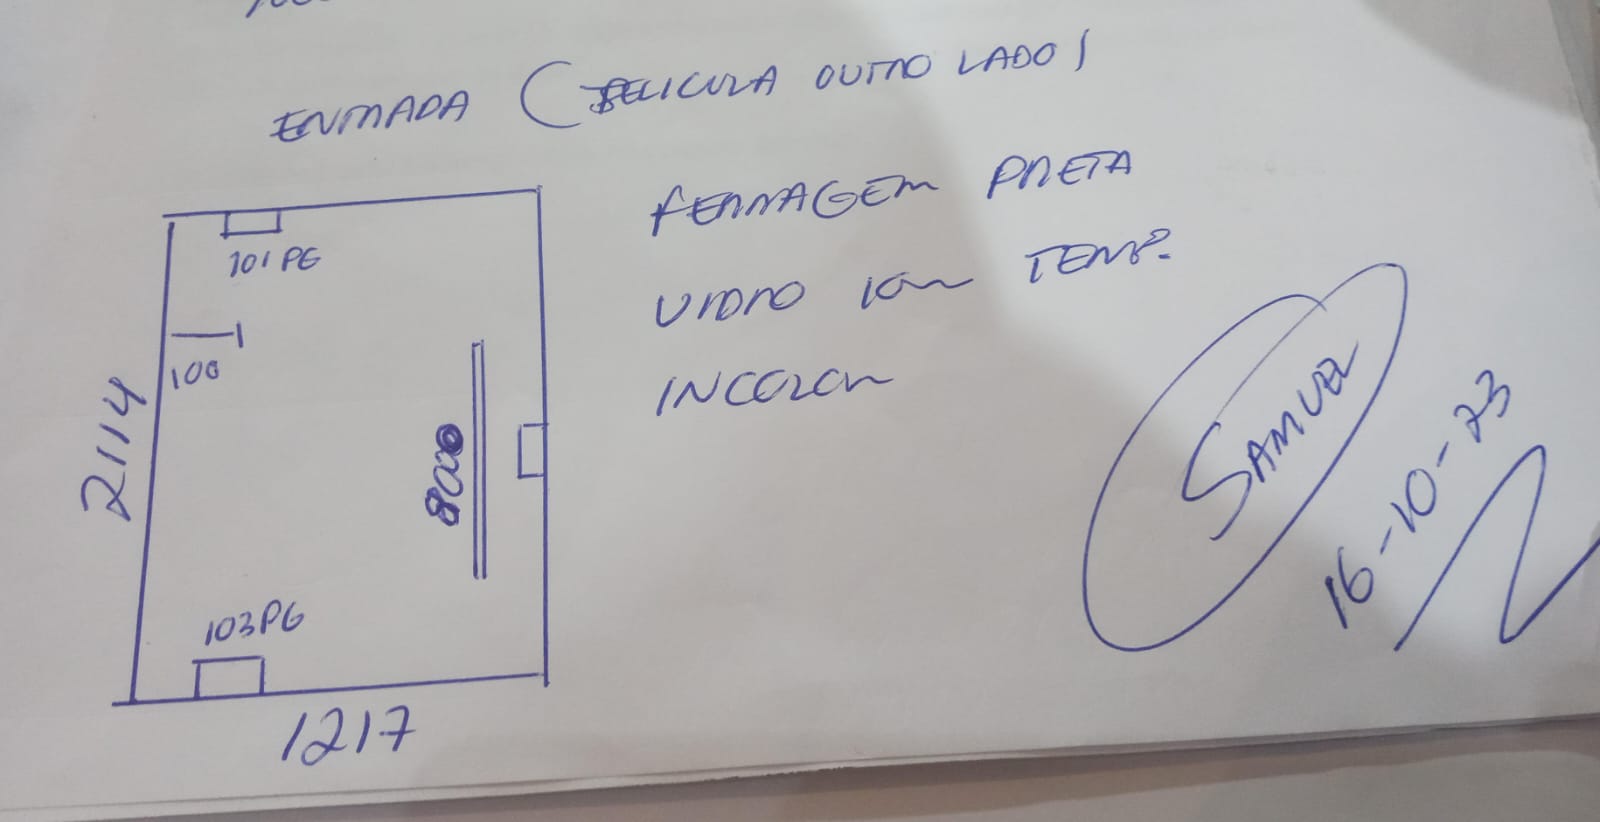 ENTRADA (PELICULA OUTRO LADO)
FERRAGEM PRETA
VIDRO 10m TEMP.
INCOLOR
101 PG
100
2114
8000
103PG
1217
SAMUEL
16-10-23